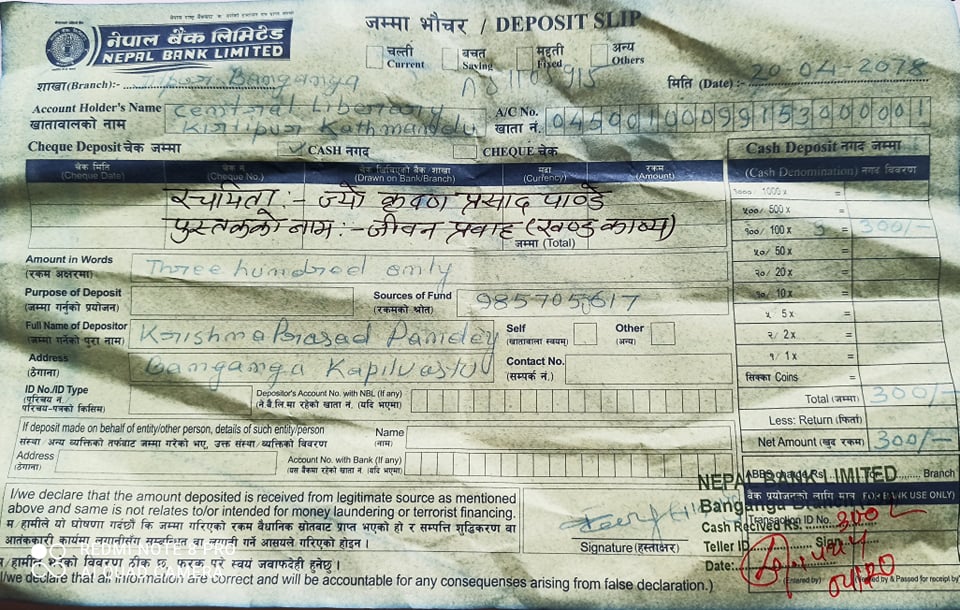 जम्मा भौचर / DEPOSIT SLIP
नेपाल बैंक लिमिटेड
NEPAL BANK LIMITED
चल्ती
Current
बचत
Saving
मुद्दती
Fixed
अन्य
Others
शाखा(Branch):- Banganga
मिति (Date):- 20-04-2078
Account Holder's Name
खातावालको नाम
Central Liberary
Kirtipur Kathmandu
A/C No.
खाता नं.
Cheque Deposit चेक जम्मा
CASH नगद
CHEQUE चेक
Cash Deposit नगद जम्मा
चेक मिति
(Cheque Date)
चेक नं.
(Cheque No.)
(Drawn on Bank/Branch)
मुद्रा
(Currency)
रकम
(Amount)
(Cash Denomination) नगद विवरण
प्रसाद पाण्डे
पुस्तकको नाम :- जीवन प्रवाह (खण्ड काव्य)
जम्मा (Total)
१०००/ 1000 x =
५००/ 500 x =
१००/ 100 x 3 = 300/-
५०/ 50 x =
२०/ 20 x =
१०/ 10 x =
५/ 5 x =
२/ 2 x =
१/ 1 x =
सिक्का Coins =
Total (जम्मा) 300/-
Less: Return (फिर्ता)
Net Amount (खुद रकम) 300/-
Amount in Words
(रकम अक्षरमा)
Three hundred only
Purpose of Deposit
(जम्मा गर्नुको प्रयोजन)
Sources of Fund
(रकमको श्रोत)
Full Name of Depositor
(जम्मा गर्नेको पुरा नाम)
Krishna Prasad Pandey
Self
(खातावाला स्वयम्)
Other
(अन्य)
Address
(ठेगाना)
Banganga Kapilvastu
Contact No.
(सम्पर्क नं.)
ID No./ID Type
(परिचय नं.
परिचय-पत्रको किसिम)
Depositor's Account No. with NBL (If any)
(ने.बैं.लि.मा रहेको खाता नं. (यदि भएमा)
If deposit made on behalf of entity/other person, details of such entity/person
संस्था/ अन्य व्यक्तिको तर्फबाट जम्मा गरेको भए, उक्त संस्था/ व्यक्तिको विवरण
Name
(नाम)
Address
(ठेगाना)
Account No. with Bank (If any)
(यस बैंकमा रहेको खाता नं. (यदि भएमा)
I/we declare that the amount deposited is received from legitimate source as mentioned
above and same is not relates to/or intended for money laundering or terrorist financing.
म/हामीले यो घोषणा गर्दछौं कि जम्मा गरिएको रकम वैधानिक स्रोतबाट प्राप्त भएको हो र सम्पत्ति शुद्धिकरण वा
आतंककारी कार्यमा लगानीसँग सम्बन्धित वा लगानी गर्ने आसयले गरिएको होइन।
I/we declare that all information are correct and will be accountable for any consequences arising from false declaration.)
Signature (हस्ताक्षर)
ABBS charge Rs. Branch
बैंक प्रयोजनको लागि मात्र (FOR BANK USE ONLY)
Transaction ID No.
NEPAL BANK LIMITED
Banganga
Cash Recived Rs. 300/-
Teller ID Sign
Date:
(Entered by)
REDMI NOTE 8 PRO
AI QUAD CAMERA